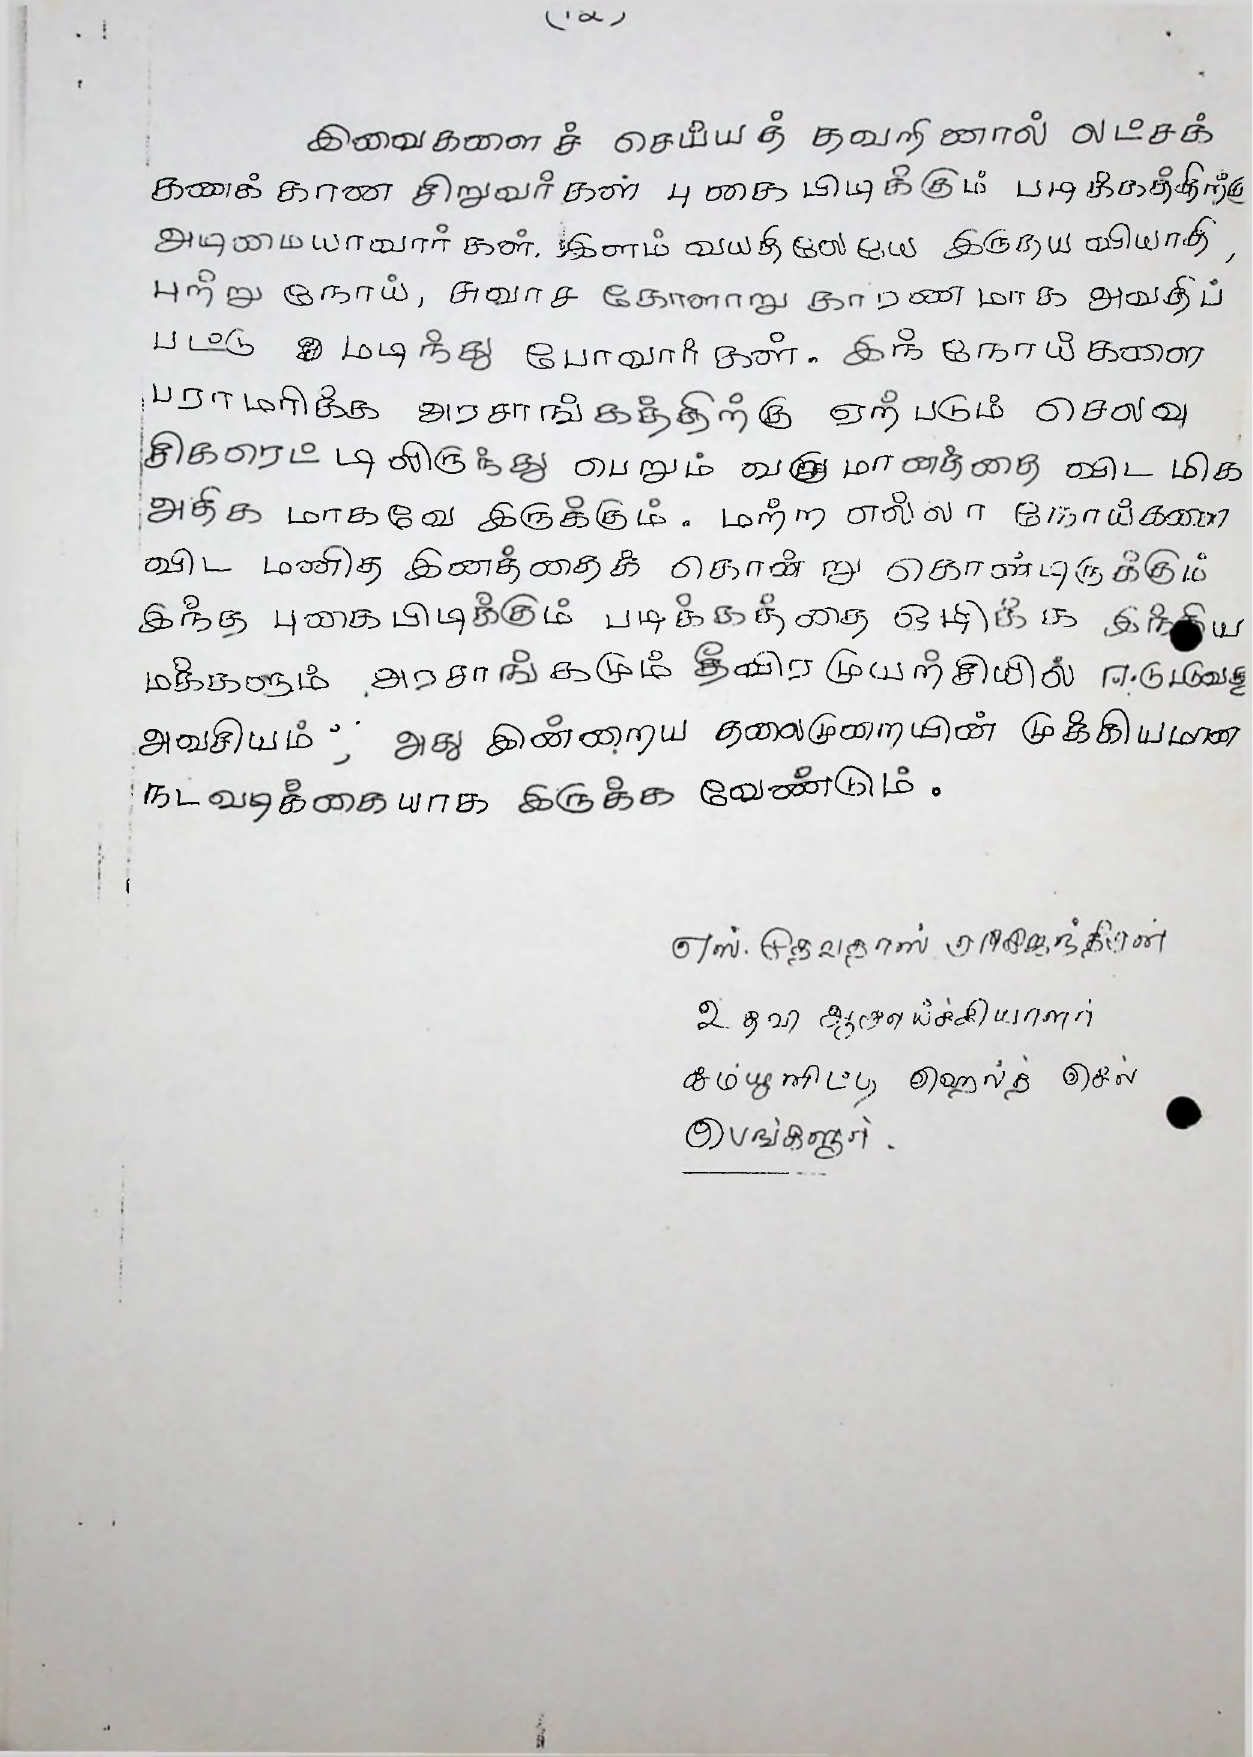 இவைகளைச் செய்யத் தவறினால் லட்சக்
கணக்கான சிறுவர்கள் புகைபிடிக்கும் படிக்கத்திற்கு
அடிமையாவார்கள். இளம் வயதிலேயே இருதய வியாதி,
புற்று நோய், சுவாச கோளாறு காரணமாக அவதிப்
பட்டு மடிந்து போவார்கள். இந் நோய்களை
பராமரிக்க அரசாங்கத்திற்கு ஏற்படும் செலவு
சிகரெட்டிலிருந்து பெறும் வருமானத்தை விட மிக
அதிகமாகவே இருக்கும். மற்ற எல்லா நோய்களை
விட மனித இனத்தைக் கொன்று கொண்டிருக்கும்
இந்த புகைபிடிக்கும் படிக்கத்தை ஒழிக்க இந்திய
மக்களும் அரசாங்கமும் தீவிர முயற்சியில் ஈடுபடுவது
அவசியம்; அது இன்றைய தலைமுறையின் முக்கியமான
நடவடிக்கையாக இருக்க வேண்டும்.
எஸ். தேவதாஸ் ராஜேந்திரன்
உதவி ஆராய்ச்சியாளர்
கம்யூனிட்டி ஹெல்த் செல்
பெங்களூர்.